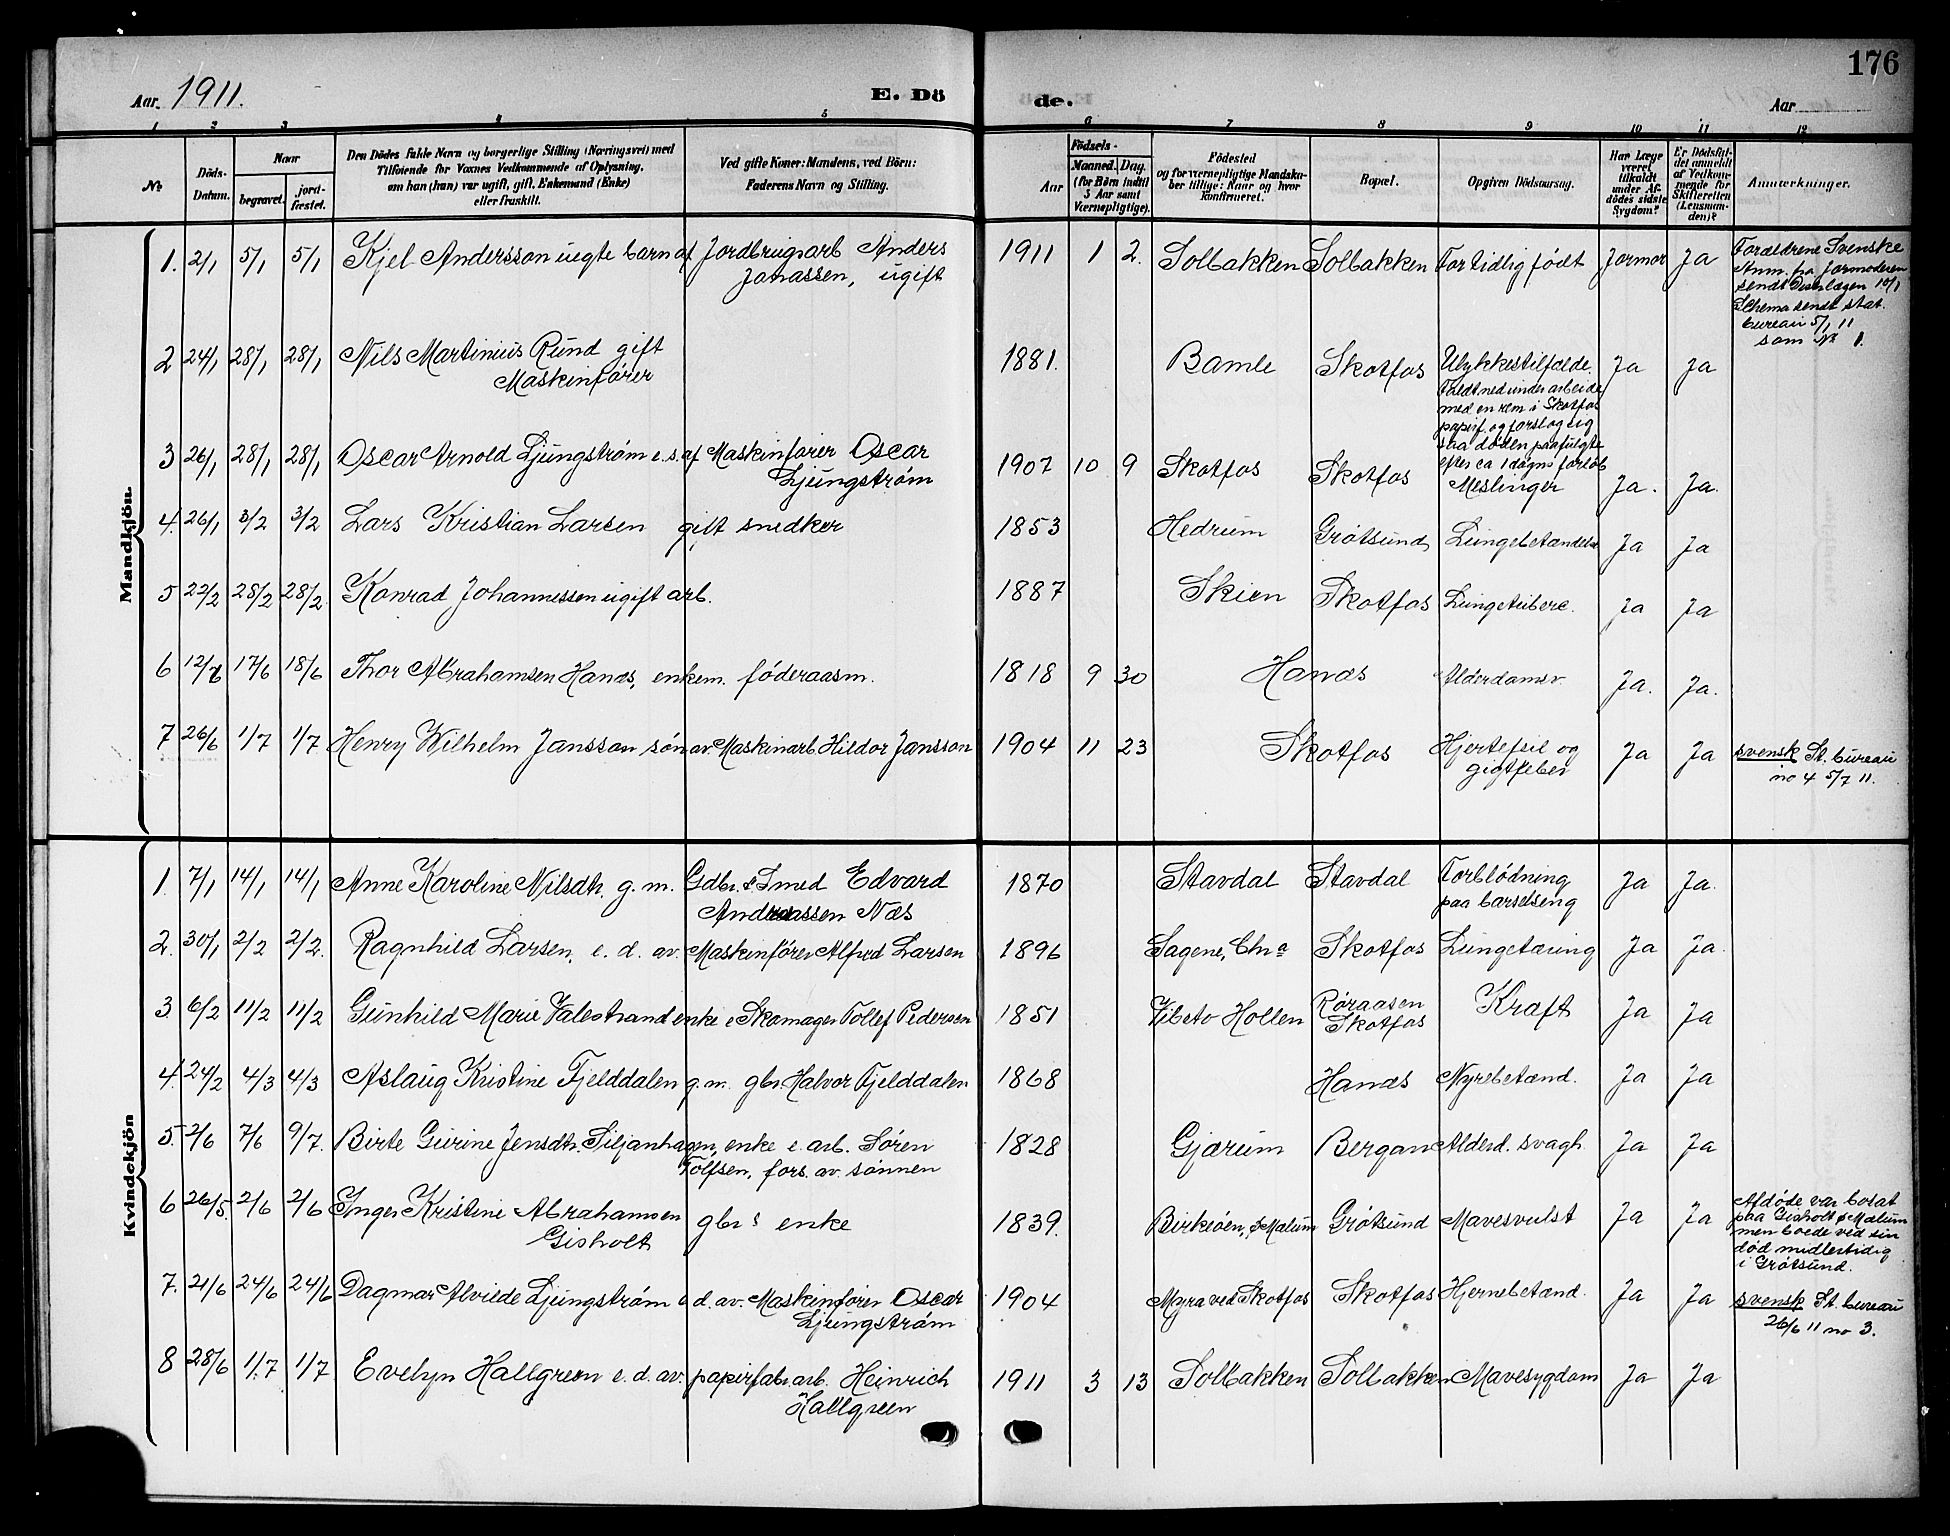 176
Aar 1911.
E. Dö
de.
Aar
1 2 3 4 5 6 7 8 9 10 11 12
№
Döds-Datum.
Naar
begravet.
jordfæstet.
Den Dödes fulde Navn og borgerlige Stilling (Næringsvei) med
Tilföiende for Voxnes Vedkommende af Oplysning,
om han (hun) var ugift, gift, Enkemand (Enke)
eller fraskilt.
Ved gifte Koner: Mandens, ved Börn:
Faderens Navn og Stilling.
Födsels-
Aar
Maaned. Dag.
(for Börn indtil
5 Aar samt
Værnepligtige).
Födested
og for værnepligtige Mandskaber
tillige: Naar og hvor
konfirmeret.
Bopæl.
Opgiven Dödsaarsag.
Har Læge
været
tilkaldt
under Afdödes
sidste
Sygdom?
Er Dödsfaldet
anmeldt
af Vedkommende
for
Skifteretten
(Lensmanden)?
Anmærkninger.
Mandkjön.
1. 2/1 5/1 5/1 Kjel Andersson uegte barn af Jordbrugsarb Anders
Jonassen, ugift
1911 1 2. Solbakken Solbakken For tidlig født Jormor Ja
Forældrene Svenske
Anm. fra Jormoderen
sendt Distrlægen 10/1
Schema sendt stat.
bureau 5/1 11
som № 1.
2 24/1 28/1 28/1 Nils Martinius Rund gift
Maskinfører
1881. Bamle Skotfos Ulykkestilfælde. Ja Ja
Faldt ned under arbeide
med en rem i Skotfos
papirf. og forslog sig
saa døden paafulgte
efter ca 1 døgns forløb
3 26/1 28/1 28/1 Oscar Arnold Ljungstrøm e. s. af Maskinfører Oscar
Ljungstrøm
1907 10 9 Skotfos Skotfos Meslinger Ja. Ja.
4. 26/1 3/2 3/2 Lars Kristian Larsen gift snedker
1853 Hedrum Grøtsund Lungebetændelse Ja Ja
5 22/2 28/2 28/2 Konrad Johannessen ugift arb.
1887 Skien Skotfos Lungetuberc. Ja Ja
6 12/6 17/6 18/6 Thor Abrahamsen Hanæs, enkem. føderaasm.
1818 9 30 Hanæs Alderdomsv. Ja. Ja.
7 26/6 1/7 1/7 Henry Wilhelm Jansson søn av. Maskinarb Hildor Jansson
1904 11 23 Skotfos Hjertefeil og Ja Ja svensk St. bureau
gigtfeber
no 4 5/7 11.
Kvindekjön
1. 7/1 14/1 14/1 Anne Karoline Nilsdtr. g. m. Gdbr. & Smed Edvard
Andreassen Næs
1870 Stavdal Stavdal Forblødning Ja Ja.
paa barselseng
2. 30/1 2/2 2/2. Ragnhild Larsen, e. d. av. Maskinfører Alfred Larsen
1896 Sagene, Chra Skotfos Lungetæring Ja Ja.
3 6/2 11/2 11/2 Gunhild Marie Valestrand enke e Skomager Tollef Pedersen
1851 Vibeto Hollen Røraasen
Skotfos Kræft Ja Ja
4. 24/2 4/3 4/3 Aslaug Kristine Fjelddalen g. m. gbr. Halvor Fjelddalen
1868 Hanæs Nyrebetænd. Ja Ja
5. 2/6 7/6 9/7 Birte Gurine Jensdtr. Siljanhagen, enke e. arb. Søren
Tolfsen, fors. av. sønnen
1828 Gjærum Bergan Alderd. svagh. Ja Ja
6 26/5. 2/6 2/6 Inger Kristine Abrahamsen gbrs enke
Gisholt
1839. Birkeøen, Mælum Grøtsund Mavesvulst Ja Ja
Afdøde var bosat
paa Gisholt Mælum
men boede ved sin
død midlertidig
i Grøtsund.
7. 21/6 24/6 24/6 Dagmar Alvilde Ljungstrøm e d. av. Maskinfører Oscar
Ljungstrøm
1904 Myra ved Skotfos Skotfos Hjernebetænd. Ja Ja svensk St. bureau
26/6 11 no 3.
8 28/6 1/7 1/7 Evelyn Hallgreen e. d. av. papirfabr. arb. Heinrich
Hallgreen
1911 3 13 Solbakken Solbakken Mavesygdom Ja Ja